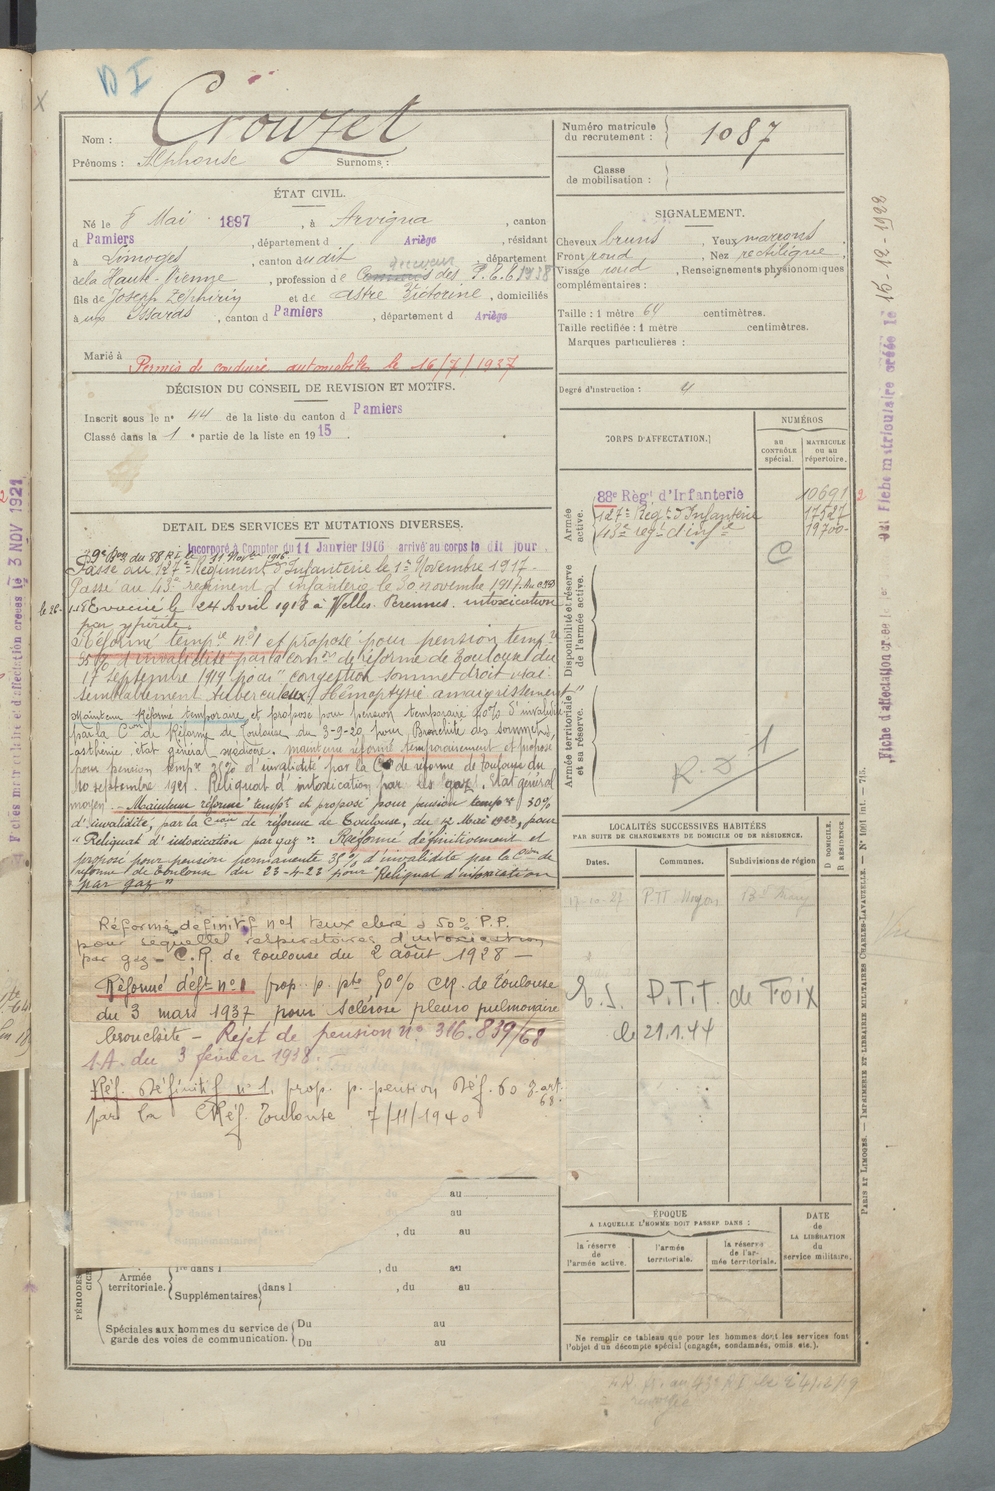 D I
Crouzet
Nom :
Prénoms : Alphonse Surnoms :
Numéro matricule du recrutement : 1087
Classe de mobilisation :
ÉTAT CIVIL.
Né le 8 Mai 1897, à Arvigna, canton
d Pamiers, département d Ariège, résidant
à Limoges, canton dudit, département
de la Haute-Vienne, profession de des P.T.T. 1938
fils de Joseph Zéphirin et de Astre Victorine, domiciliés
à aux Issards, canton d Pamiers, département d Ariège
Marié à
Permis de conduire automobiles le 16/7/1927
SIGNALEMENT.
Cheveux bruns, Yeux marrons
Front rond, Nez rectiligne
Visage rond, Renseignements physionomiques
complémentaires :
Taille : 1 mètre 64 centimètres.
Taille rectifiée : 1 mètre centimètres.
Marques particulières :
Degré d'instruction : 4
DÉCISION DU CONSEIL DE REVISION ET MOTIFS.
Inscrit sous le n° 44 de la liste du canton d Pamiers
Classé dans la 1e partie de la liste en 1915.
CORPS D'AFFECTATION.
NUMÉROS
AU CONTRÔLE spécial.
MATRICULE ou au répertoire.
Armée active.
88e Régt d'Infanterie 10691
127e Régt d'Infanterie 17527
19700
Disponibilité et réserve de l'armée active.
C
Armée territoriale et sa réserve.
R.D 1
DETAIL DES SERVICES ET MUTATIONS DIVERSES.
Incorporé à Compter du 11 Janvier 1916 arrivé au corps le dit jour.
du 88 R.I. le
Passé au 127e Régiment d'Infanterie le 1er Novembre 1917.
Passé au 43e régiment d'infanterie le 30 novembre 1917.
Evacué le 24 Avril 1918 à Welles-Perennes. intoxication
par ypérite.
Réformé tempre n°1 et proposé pour pension tempre
35% d'invalidité par la comon de réforme de Toulouse du
17 septembre 1919 pour "congestion sommet droit vrai-
semblablement tuberculeux, Hémoptysie amaigrissement"
Maintenu Réformé temporaire et proposé pour pension temporaire 40% d'invalidité
par la Con de Réforme de Toulouse du 3-9-20 pour Bronchite des sommets,
asthénie état général médiocre. maintenu réformé temporairement et proposé
pour pension tempre 35% d'invalidité par la Con de réforme de Toulouse du
10 septembre 1921. Reliquat d'intoxication par les gaz. Etat général
moyen. - Maintenu réformé tempre et proposé pour pension tempre 30%
d'invalidité, par la Con de réforme de Toulouse, du 12 Mai 1922, pour
"Reliquat d'intoxication par gaz". Réformé définitivement et
proposé pour pension permanente 35% d'invalidité par la Con de
réforme de Toulouse du 23-4-23 pour "Reliquat d'intoxication
par gaz"
Réformé définitif n°1 taux élevé à 50% P.P.
pour séquelles respiratoires d'intoxication
par gaz - C.R. de Toulouse du 2 août 1928 -
Réformé déft n°1 prop. p. pte 50% CR. de Toulouse
du 3 mars 1937 pour Sclérose pleuro pulmonaire
bronchite - Rejet de pension n° 316.839/68
I.A. du 3 février 1938.
Réf. Définitif n°1. prop. p. pension Déf. 60
par la CRéf. Toulouse 7/11/1940
LOCALITÉS SUCCESSIVES HABITÉES
PAR SUITE DE CHANGEMENTS DE DOMICILE OU DE RÉSIDENCE.
Dates. Communes. Subdivisions de région D DOMICILE. R RÉSIDENCE.
17-10-27 P.TT
P.T.T. de Foix
le 21.1.44
du au
au
, du au
Armée territoriale. dans l , du au
Supplémentaires dans l , du au
PÉRIODES
Spéciales aux hommes du service de garde des voies de communication. Du au
Du au
ÉPOQUE
A LAQUELLE L'HOMME DOIT PASSER DANS :
la réserve de l'armée active.
l'armée territoriale.
la réserve de l'armée territoriale.
DATE de LA LIBÉRATION du service militaire.
Ne remplir ce tableau que pour les hommes dont les services font
l'objet d'un décompte spécial (engagés, condamnés, omis, etc.).
PARIS ET LIMOGES. — IMPRIMERIE ET LIBRAIRIE MILITAIRES CHARLES-LAVAUZELLE.
Fiche matriculaire créée le 15-12-1938
3 NOV 1921